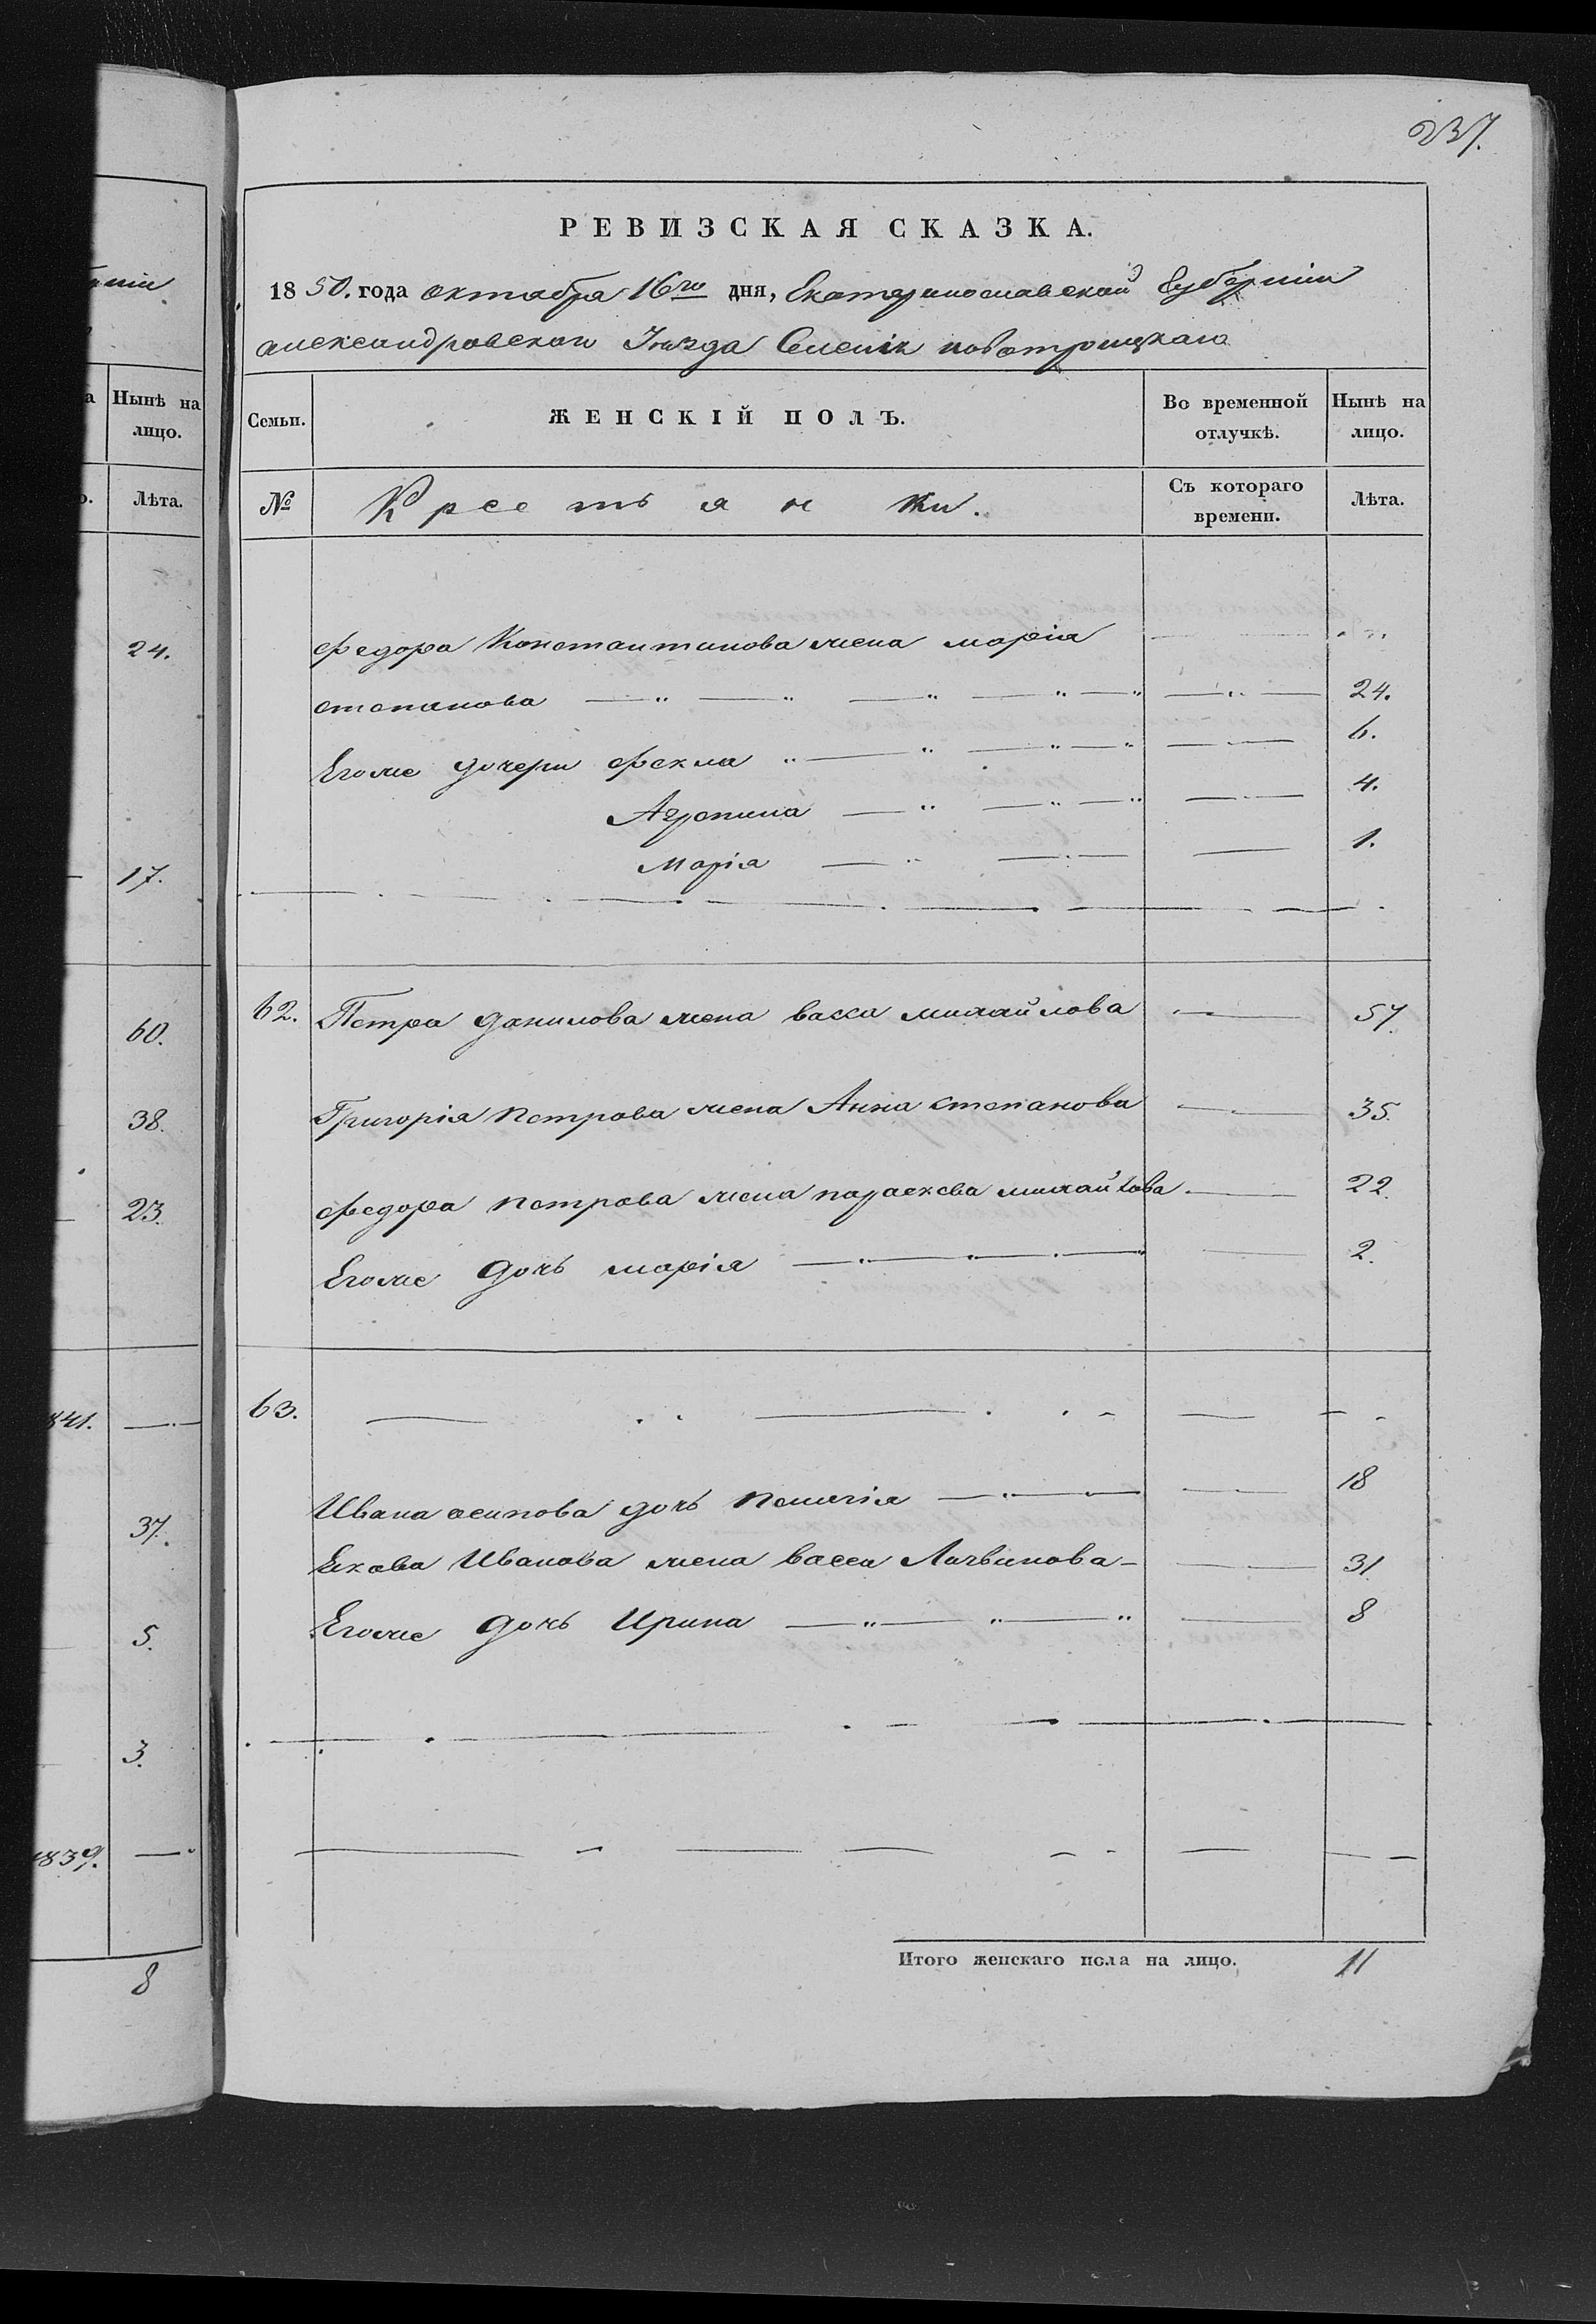 237.
РЕВИЗСКАЯ СКАЗКА.
1850. года октабра 16го дня, Екатеринославской Губерніи
александровскаго Уезда Селенія новотроицкаго
ніи
Нынѣ на
лицо.
Лѣта.
24.
17.
60.
38.
23.
841. —
37.
5.
3.
1839. —
8
Семьи. ЖЕНСКІЙ ПОЛЪ. Во временной отлучкѣ. Нынѣ на лицо.
№ Крестьянки. Съ котораго времени. Лѣта.
федора Константинова жена марія
степанова 24.
Егоже дочери фекла 6.
Агрепина 4.
Марія 1.
62. Петра данилова жена васса михайлова 57.
Григорія петрова жена Анна степанова 35.
федора петрова жена параскева михайлова 22.
Егоже дочь марія 2.
63.
Ивана осипова дочь пелагія 18
Якова Иванова жена васса Логвинова 31
Егоже дочь Ирина 8
Итого женскаго пола на лицо. 11